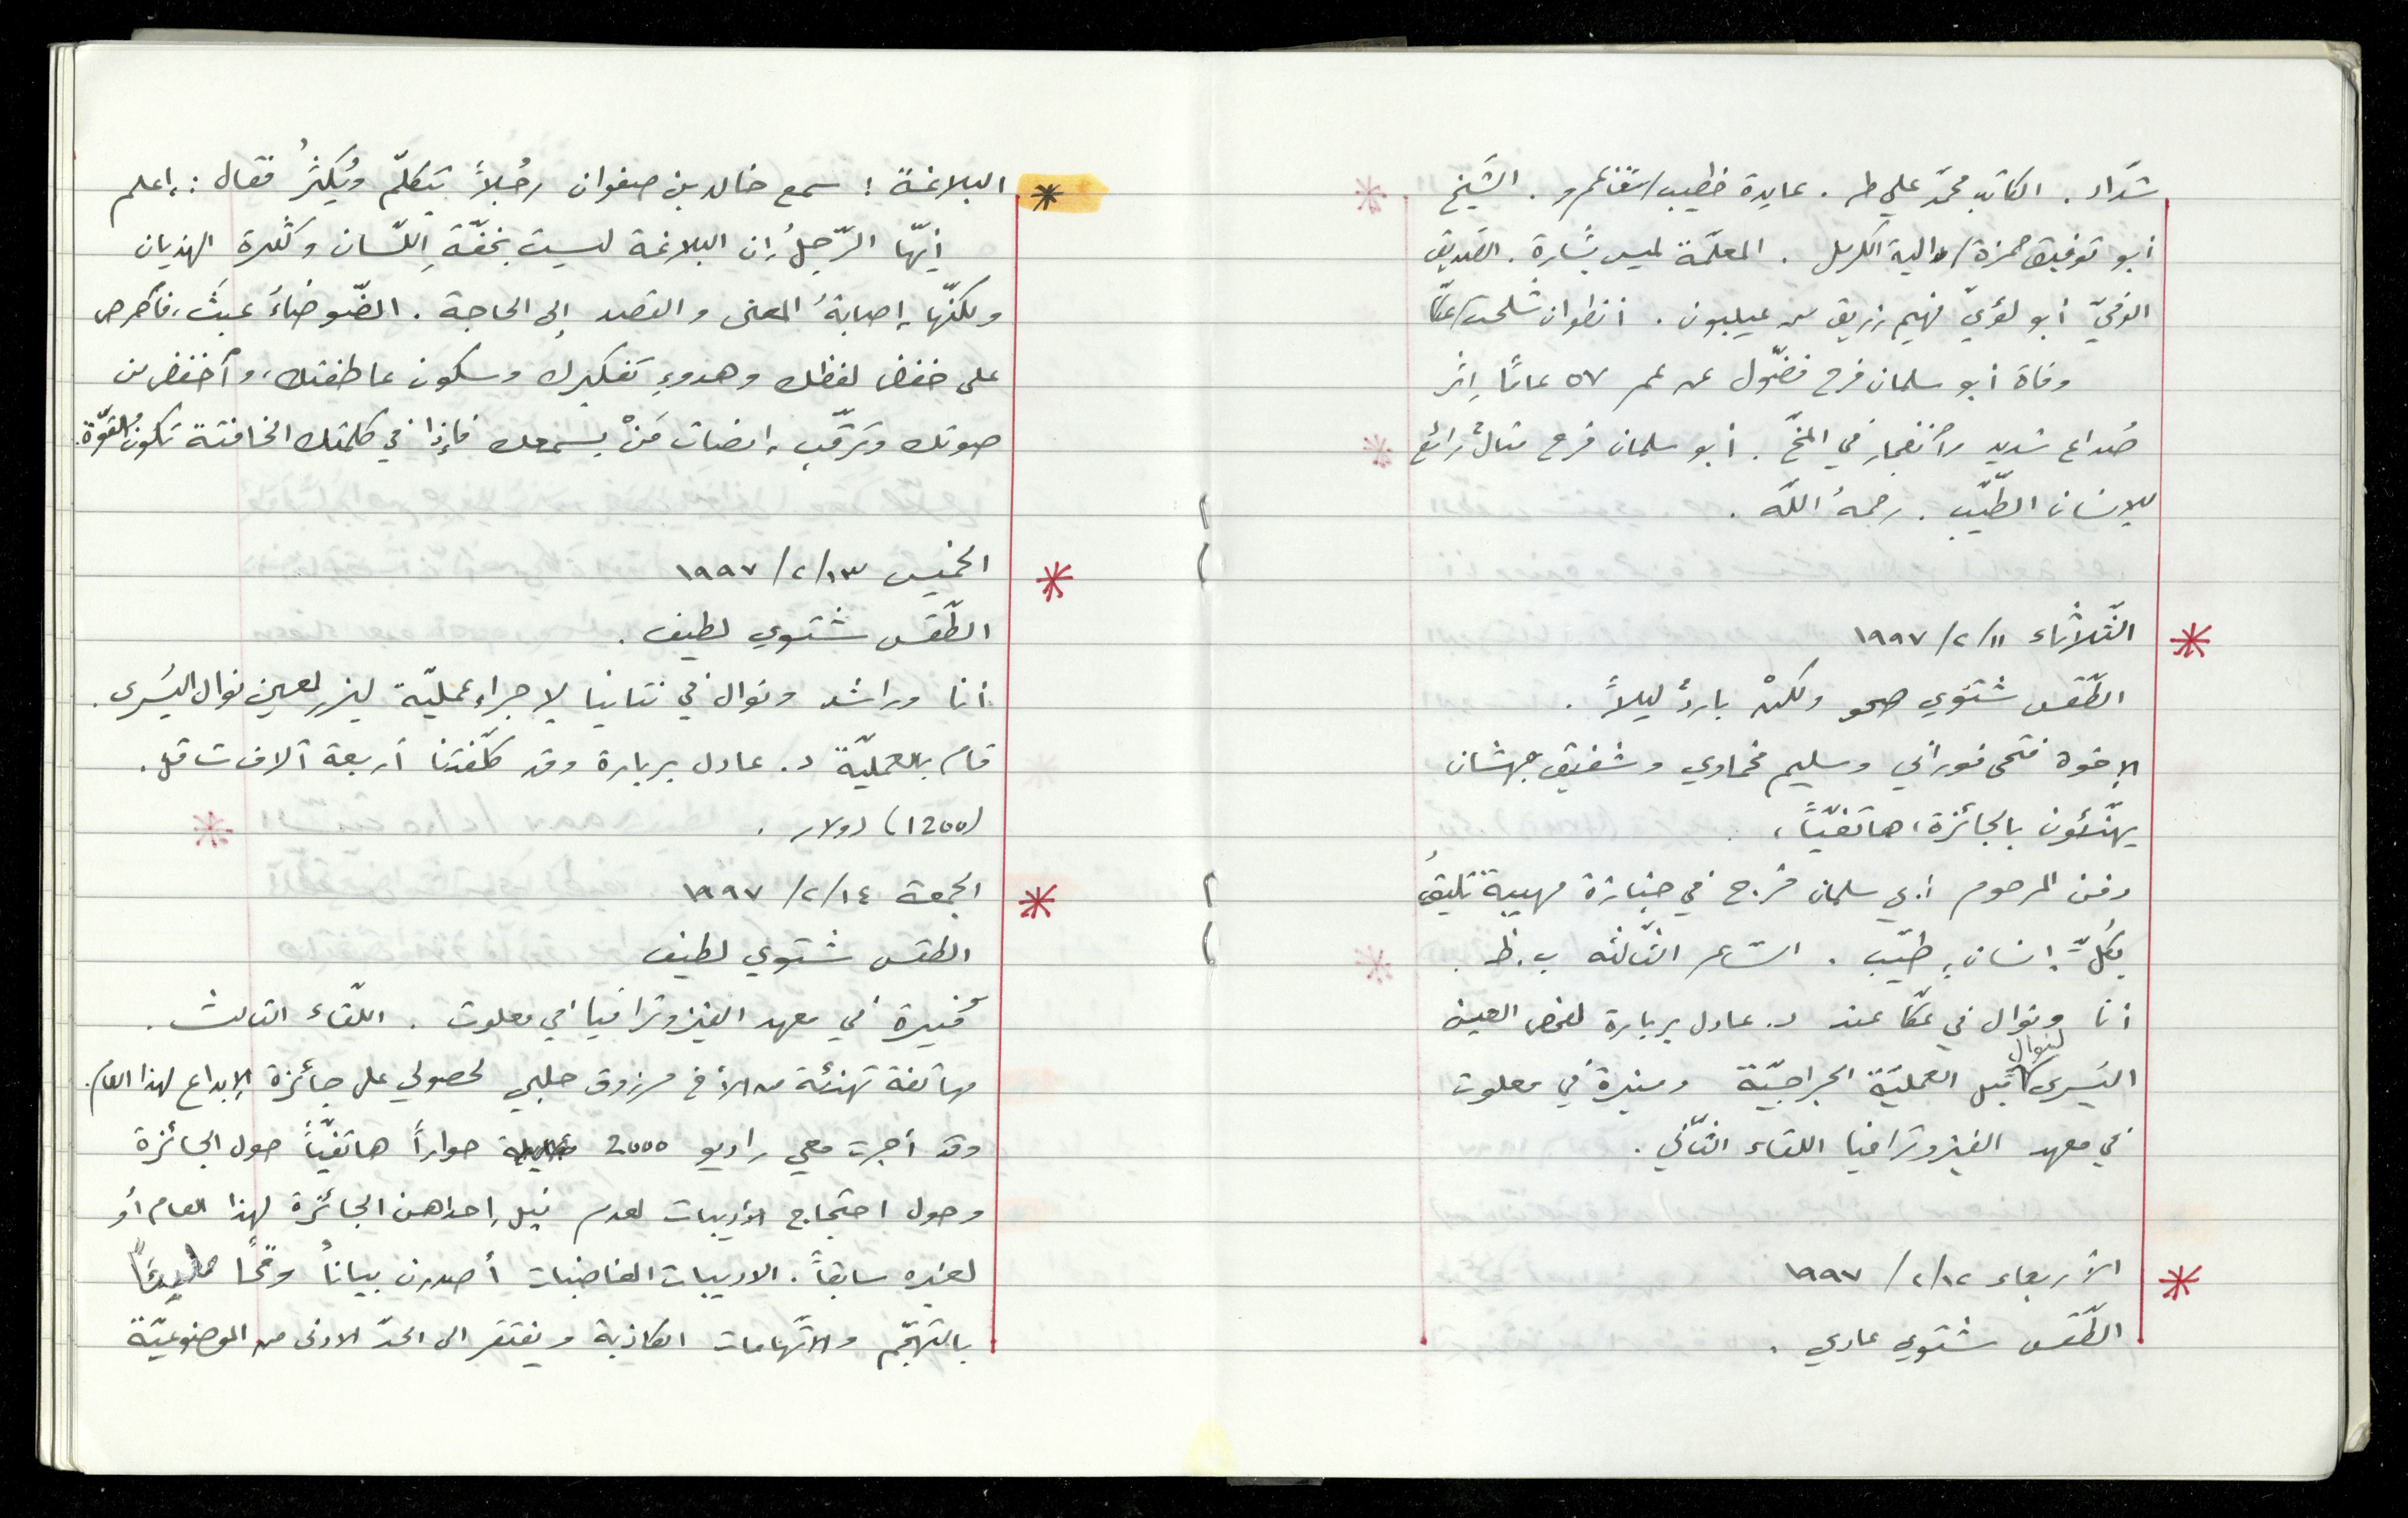 شدّاد. الكاتب محمّد علي طه. عايدة خطيب/شفاعمرو. الشّيخ
أبو توفيق حمزة/دالية الكرمل. المعلّمة لميس بشارة. الصّديق
الوفيّ أبو لؤيّ فهيم زريق من عيلبون. أنطوان شلحت/عكّا
وفاة أبو سلمان فرج فضّول عن عمر ٥٧ عامًا إثر
صُداع شديد وٱنفجار في المخّ. أبو سلمان فرج مثالٌ رائع
للإنسان الطّيّب. رحمهُ اللّه.
* الثّلاثاء ١١/٢/١٩٩٧
الطّقس شتوي صحو ولكنْ باردٌ ليلاً.
الإخوة فتحي فوراني وسليم مخماوي وشفيق جهشان
يهنّئون بالجائزة، هاتفيّاً،
دفن المرحوم أبي سلمان فرج في جنازة مهيبة تليقُ
بكُلّ إنسان طيّب. الشاعر الثّالثه ب.ظ.
أنا ونوال في عكّا عند د. عادل بربارة لفحص العين
اليُسرى لنوال قبل العمليّة الجراحيّة ومنيرة في معلوت
في معهد الفيزوترافيا اللقاء الثّاني.
* الأربعاء ١٢/٢/١٩٩٧
الطّقس شتوي عادي.
* البلاغة: سمع خالد بن صفوان رجُلاً يتكلّم ويُكثرُ فقال: إعلم
أيّها الرّجلُ إن البلاغة ليست بخفّة اللّسان وكثرة الهذيان
ولكنّها إصابةُ المعنى والقصد إلى الحاجة. الضّوضاءُ عبثٌ، فٱحرص
على خفض لفظك وهدوءِ تفكيرك وسكون عاطفتك، وٱخفض من
صوتك وترقّب إنصات مَنْ يسمعك فإذا في كلمتك الخافتة تكونُ القوّة.
* الخميس ١٣/٢/١٩٩٧
الطّقس شتوي لطيف.
أنا وراشد ونوال في نتانيا لإجراء عمليّة ليزر لعين نوال اليُسرى.
قام بالعمليّة د. عادل بربارة وقد كلّفتنا أربعة آلاف شاقل.
(1200) دولار.
* الجمعة ١٤/٢/١٩٩٧
الطقس شتوي لطيف
منيرة في معهد الفيزوترافيا في معلوت. اللّقاء الثالث.
مهاتفة تهنئة من الأخ مرزوق حلبي لحصولي على جائزة الإبداع لهذا العام.
وقد أجرت معي راديو 2000 حواراً هاتفيّاً حول الجائزة
وحول احتجاج الأديبات لعدم نيل إحداهن الجائزة لهذا العام أو
لغيره سابقاً. الاديبات الغاضبات أصدرن بياناً وقحًا مليئاً
بالتهجّم والاتّهامات الكاذبة ويفتقر الى الحدّ الادنى من الموضوعيّة